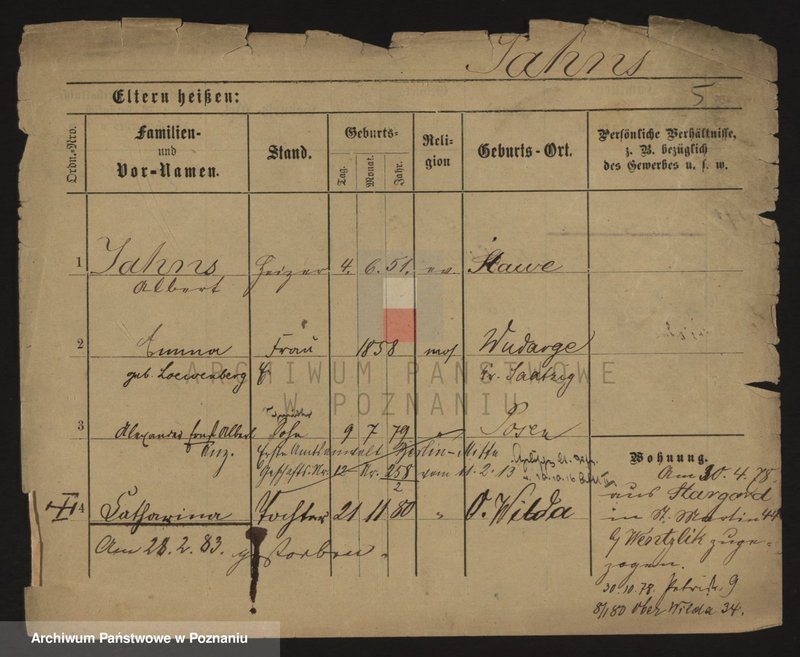 Jahns
5
Eltern heißen:
Ordn.-Nro.
Familien-
und
Vor-Namen.
Stand.
Geburts-
Tag.
Monat.
Jahr.
Reli-
gion
Geburts-Ort.
Persönliche Verhältnisse,
z. B. bezüglich
des Gewerbes u. s. w.
1 Jahns Heizer 4. 6. 51. ev
Albert
2 Emma Frau 1858 mos Wudarge
geb. Loewenberg Kr. Saatzig
3 Alexander Ernst Albert Sohn 9 7 79 " Posen
Erste Amtsanwalt Berlin-Mitte
Geschäfts-Nr. 12 Nr. 258/2 vom 11.2.13
4 Catharina Tochter 21 11 80 " O. Wilda
Am 28.2.83. gestorben.
Wohnung.
Am 30.4.78.
aus Stargard
in St. Martin 44
zuge-
zogen.
30.10.78. Petristr. 9
8/1 80 Ober Wilda 34.
ARCHIWUM PAŃSTWOWE
W POZNANIU
Archiwum Państwowe w Poznaniu